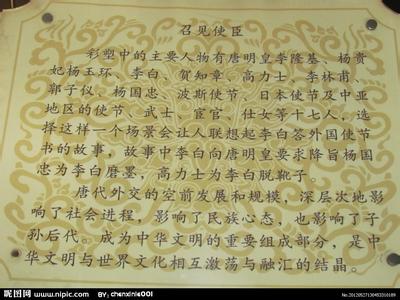 召见使臣
彩塑中的主要人物有唐明皇李隆基、杨贵
妃杨玉环、李白、贺知章、高力士、李林甫、
郭子仪、杨国忠、波斯使节、日本使节及中亚
地区的使节、武士、宦官、仕女等十七人，选
择这样一个场景会让人联想起李白答外国使节
书的故事，故事中李白向唐明皇要求降旨杨国
忠为李白磨墨，高力士为李白脱靴子。
唐代外交的空前发展和规模，深层次地影
响了社会进程，影响了民族心态，也影响了子
孙后代。成为中华文明的重要组成部分，是中
华文明与世界文化相互激荡与融汇的结晶。
昵图网
www.nipic.com
BY: chenxinle001
No:20120527130453310189